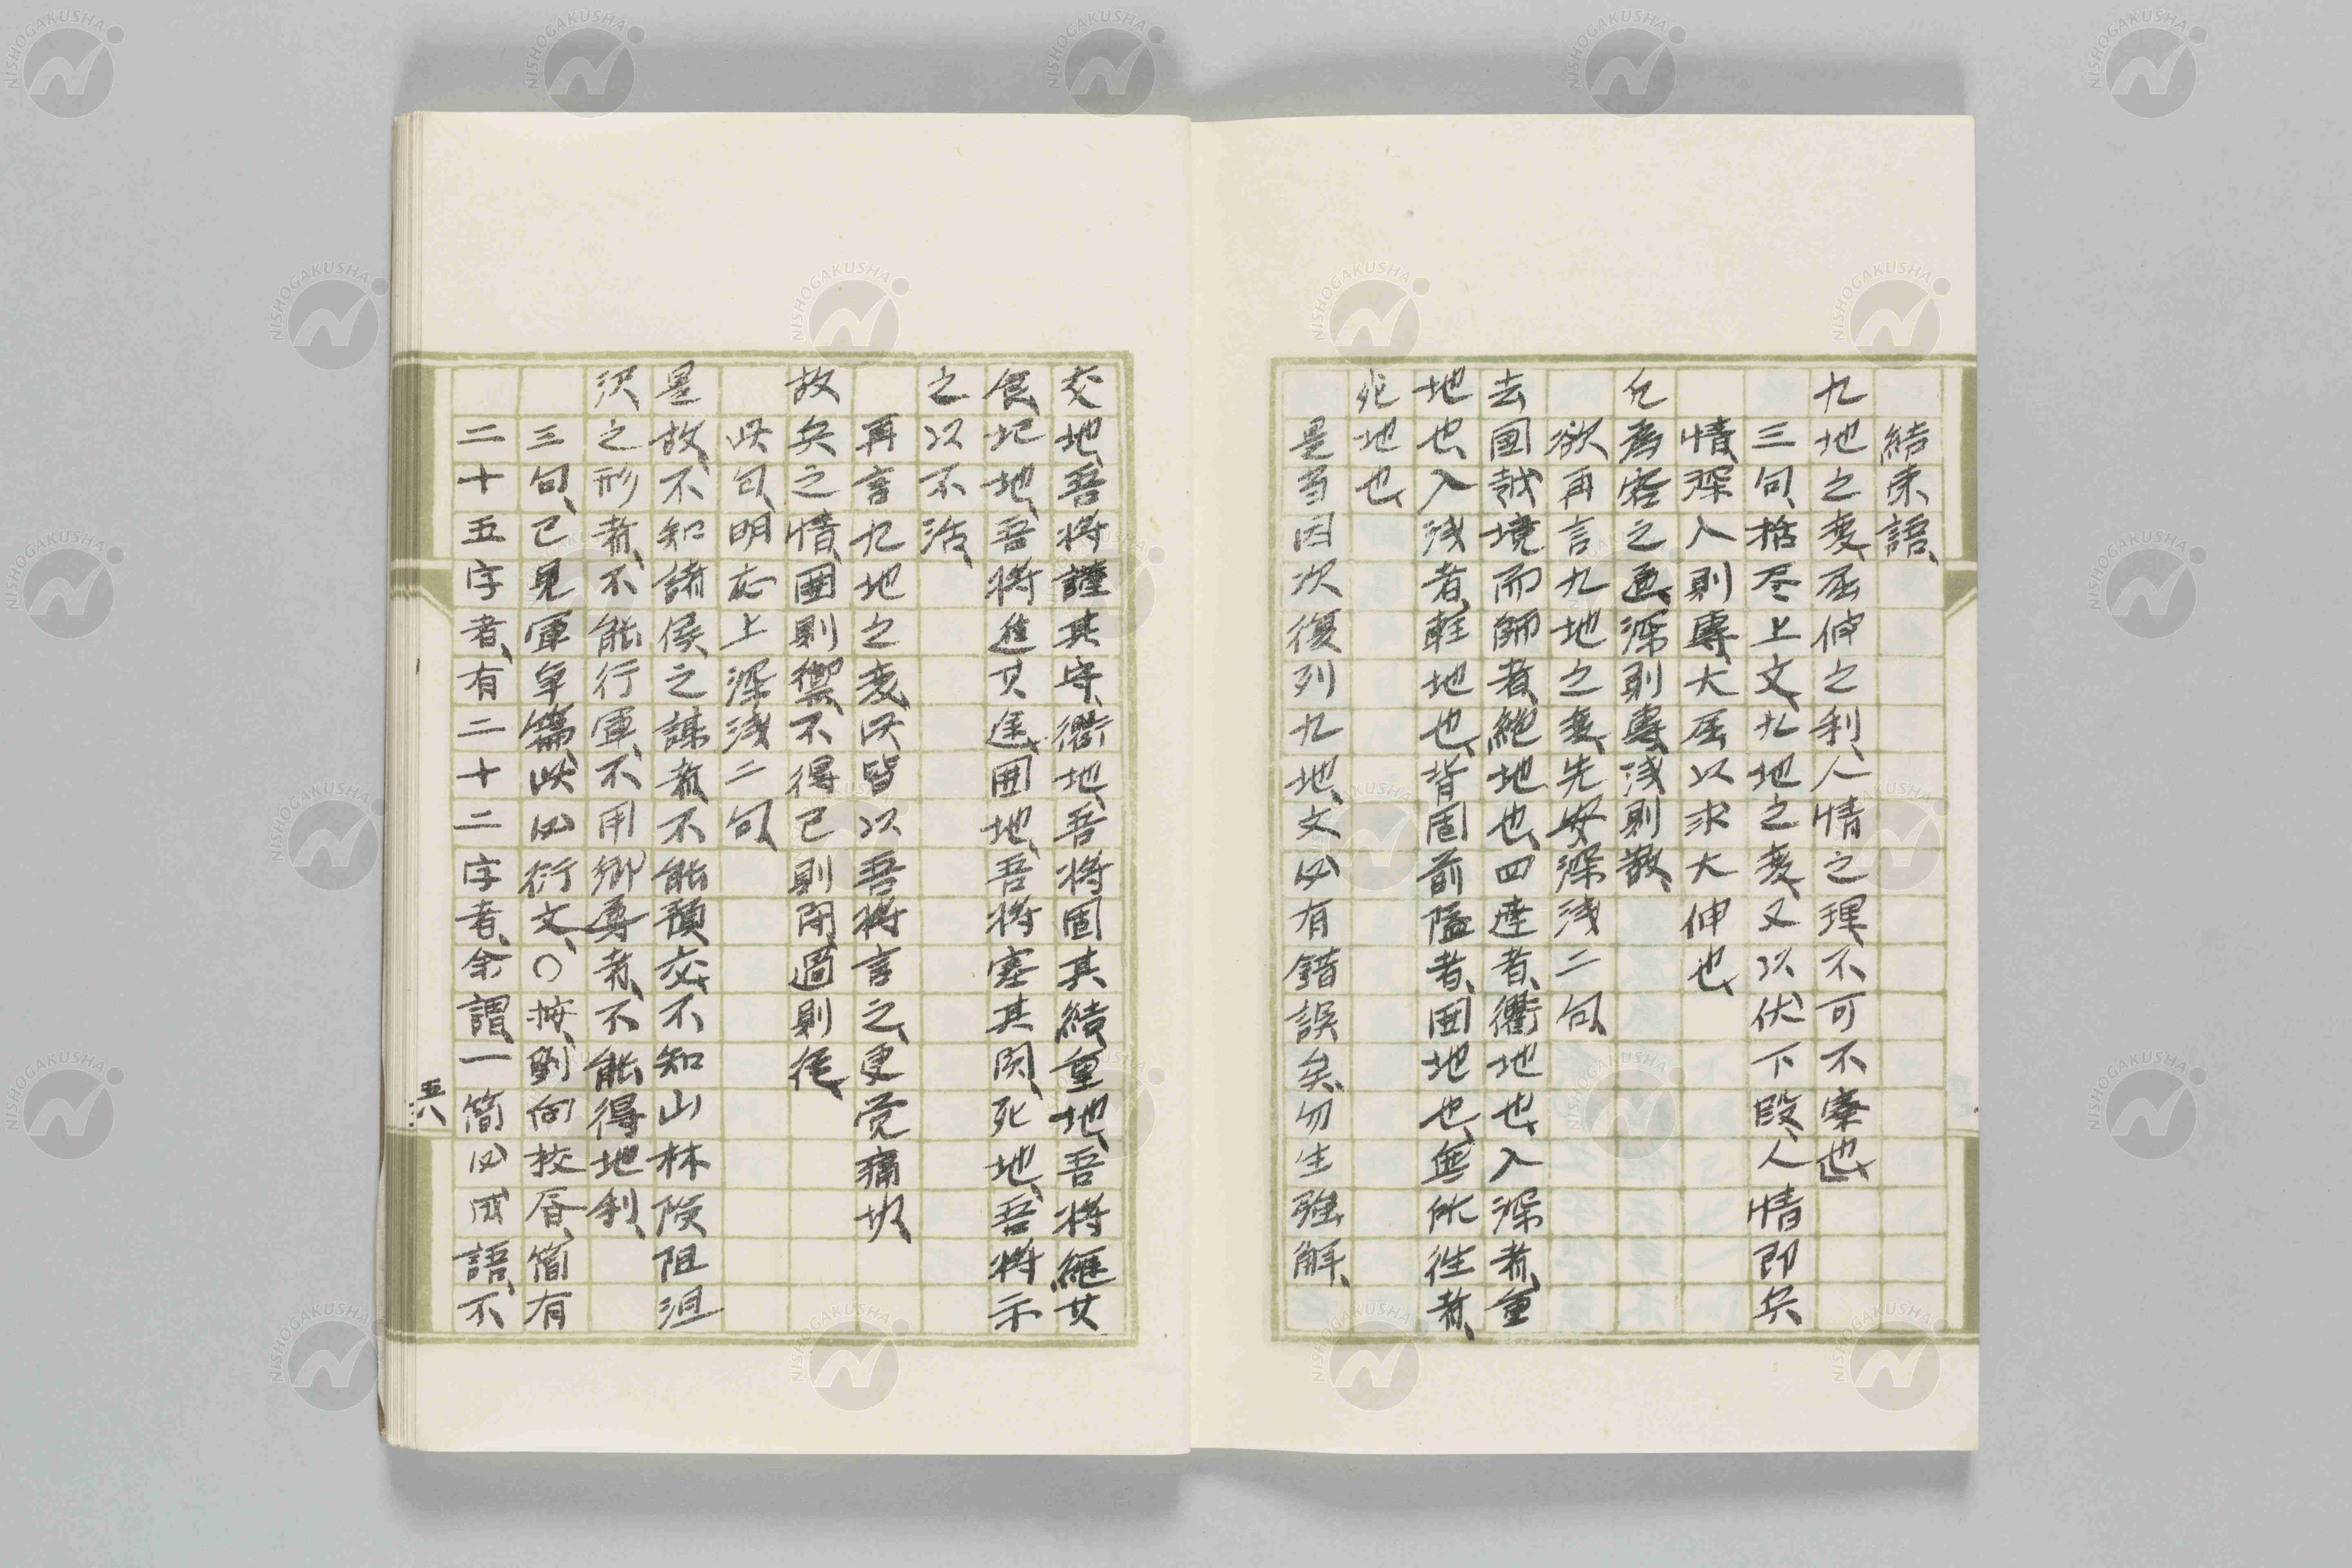 結束語、
九地之変、屈伸之利、人情之理、不可不察也、
三句、括尽上文、九地之変、又以伏下段、人情即兵
情、深入則專、大屈以求大伸也、
凡為客之道、深則專、浅則散、
欲再言九地之変、先安深浅二句、
去國越境而師者、絶地也、四達者、衢地也、入深者、重
地也、入浅者、軽地也、背固前隘者、囲地也、無所往者、
死地也、
是当因次復列九地、文必有錯誤矣、勿生強解、
交地、吾将謹其守、衢地、吾将固其結、重地、吾将継其
食、圮地、吾将進其途、囲地、吾将塞其闕、死地、吾将示
之以不活、
再言九地之変、此皆以吾将言之、更覚痛切、
故兵之情、囲則禦、不得已則闘、過則従、
此句、明応上深浅二句、
是故、不知諸侯之謀者、不能預交、不知山林険阻沮
沢之形者、不能行軍、不用郷導者、不能得地利、
三句、已見軍争篇、此必衍文、〇按、劉向校書、簡有
二十五字者、有二十二字者、余謂、一簡必成語、不
五八
NISHOGAKUSHA